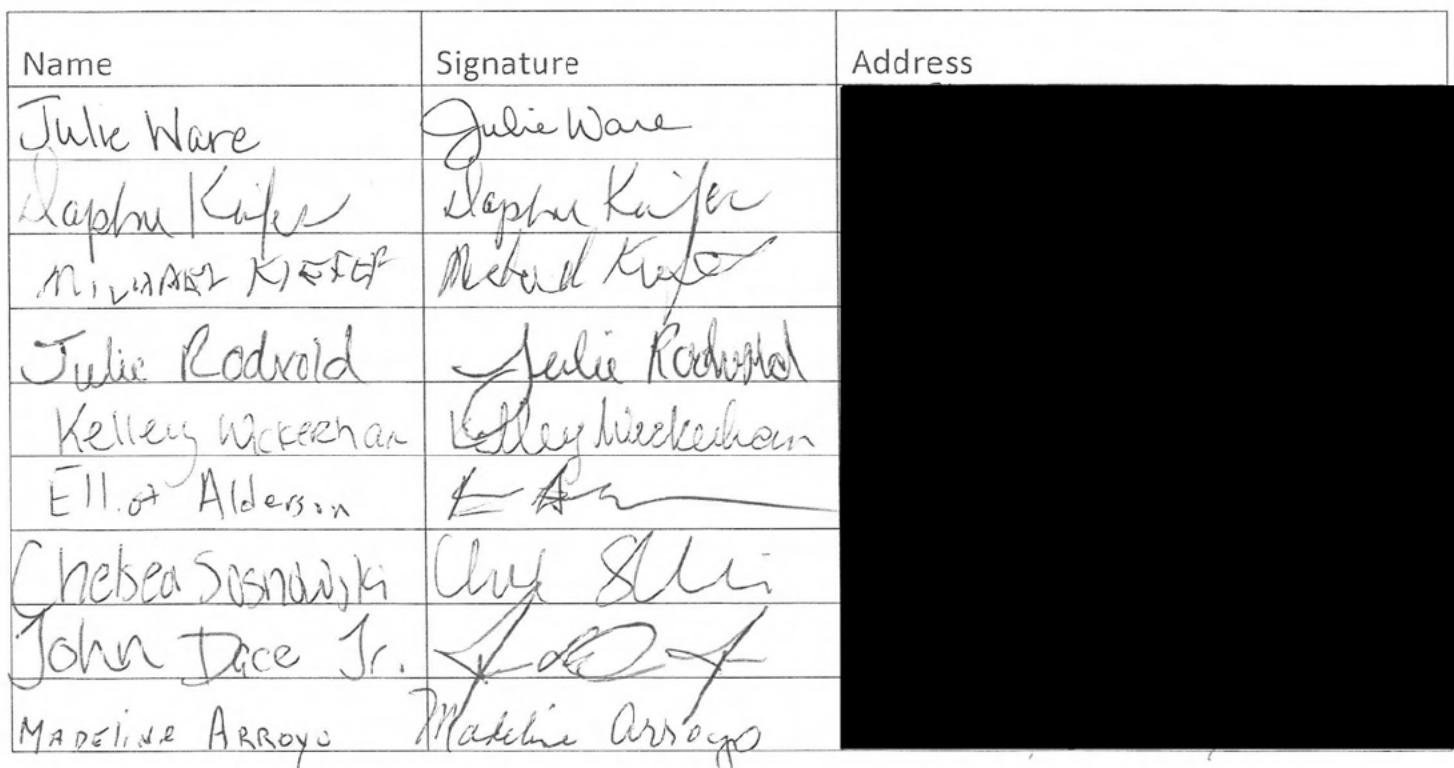 Name Signature Address
Julie Ware Julie Ware
Daphne Kiefer Daphne Kiefer
MICHAEL KIEFER Michael Kiefer
Julie Rodvold Julie Rodvold
Kelley Wickerham Kelley Wickerham
Elliot Alderson
Chelsea Sosnowski
John Dace Jr.
MADELINE ARROYO Madeline Arroyo